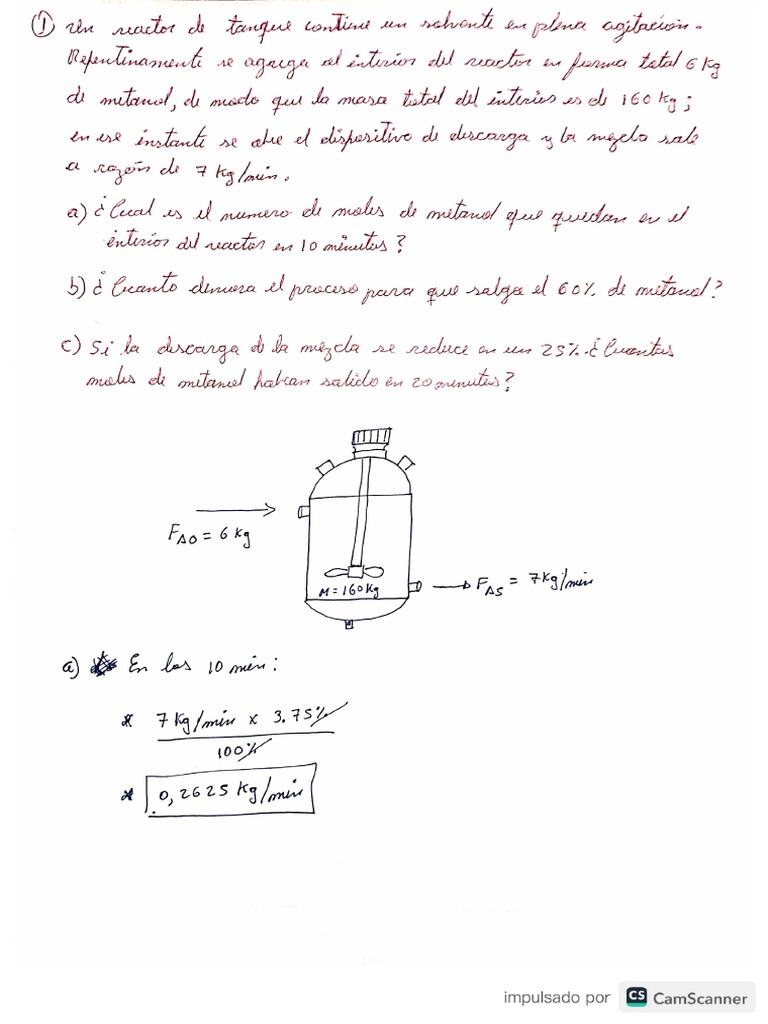 ① Un reactor de tanque contiene un solvente en plena agitación.
Repentinamente se agrega al interior del reactor en forma total 6 Kg
de metanol, de modo que la masa total del interior es de 160 Kg;
en ese instante se abre el dispositivo de descarga y la mezcla sale
a razón de 7 Kg/min.
a) ¿Cual es el numero de moles de metanol que quedan en el
interior del reactor en 10 minutos?
b) ¿Cuanto demora el proceso para que salga el 60% de metanol?
c) Si la descarga de la mezcla se reduce en un 25% ¿Cuantas
moles de metanol habran salido en 20 minutos?
F_AO = 6 Kg
M = 160 Kg
F_AS = 7 Kg/min
a) En los 10 min:
* 7 Kg/min x 3.75%
100%
* 0,2625 Kg/min
impulsado por CS CamScanner